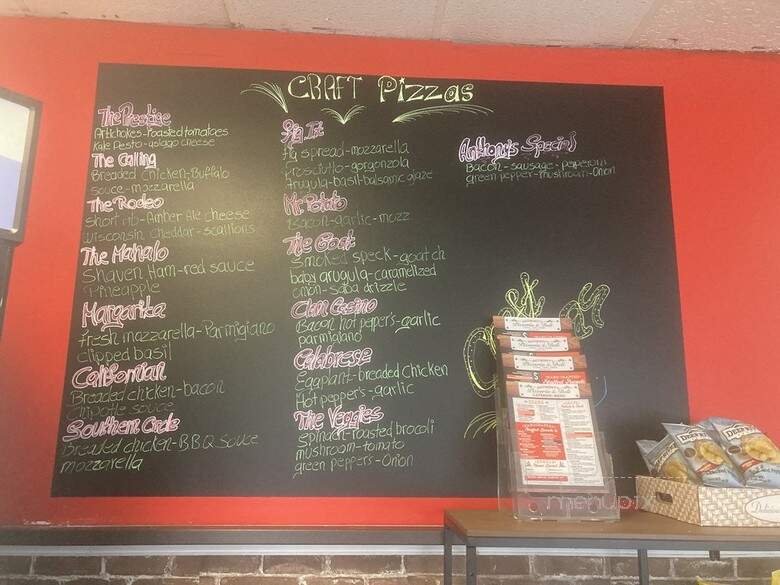 CRAFT Pizzas
The Prestige
Artichokes-roasted tomatoes
Kale Pesto-asiago cheese
The Calling
Breaded chicken-Buffalo
sauce-mozzarella
The Rodeo
Short rib-Amber Ale cheese
Wisconsin Cheddar-scallions
The Mahalo
Shaven Ham-red sauce
Pineapple
Margarita
Fresh mozzarella-Parmigiano
clipped basil
Californian
Breaded chicken-bacon
Chipotle sauce
Southern
Breaded chicken-BBQ sauce
mozzarella
Fig It
fig spread-mozzarella
Prosciutto-gorgonzola
Arugula-basil-balsamic glaze
Mr Potato
Bacon-garlic-mozz
The Goat
Smoked speck-goat ch
baby arugula-caramelized
onion-Saba drizzle
Clam Casino
Bacon hot peppers-garlic
parmigiano
Calabrese
Eggplant-breaded chicken
Hot peppers-garlic
The Veggies
Spinach-roasted brocoli
mushroom-tomato
green peppers-Onion
Anthony's Special
Bacon-sausage-pepperoni
green pepper-mushroom-Onion